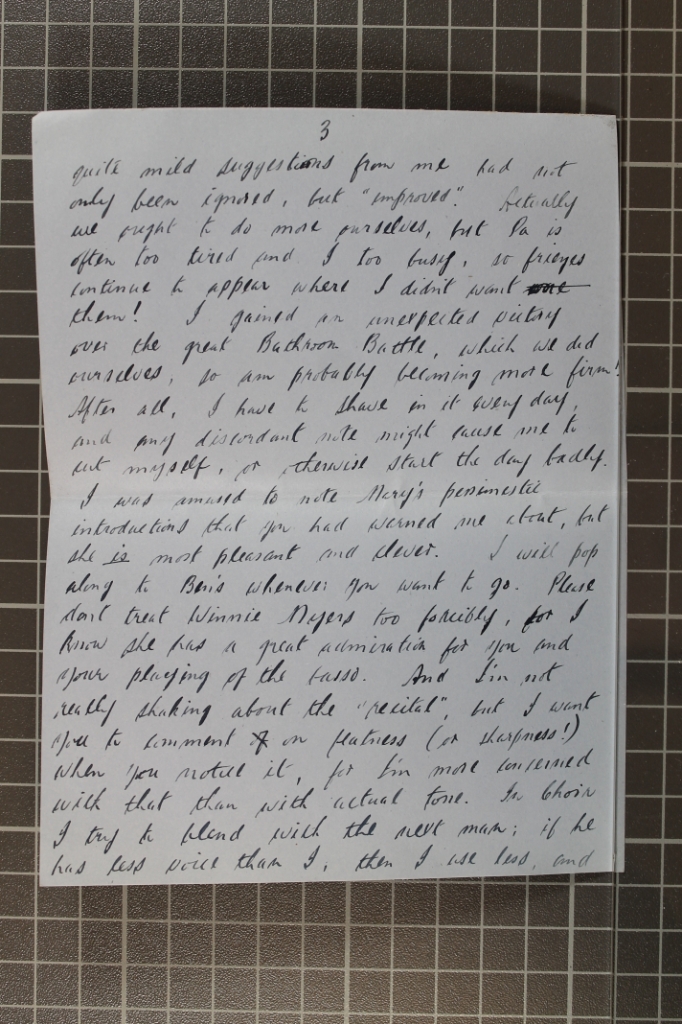 3
quite mild suggestions from me had not
only been ignored, but "improved". Actually
we ought to do more ourselves, but Pa is
often too tired and I too busy, so friezes
continue to appear where I didn't want
them! I gained an unexpected victory
over the great Bathroom Battle, which we did
ourselves, so am probably becoming more firm!
After all, I have to shave in it every day,
and any discordant note might cause me to
cut myself, or otherwise start the day badly.
I was amused to note Mary's pessimestic
introductions that you had warned me about, but
she is most pleasant and clever. I will pop
along to Ben's whenever you want to go. Please
don't treat Winnie Myers too forcibly, for I
know she has a great admiration for you and
your playing of the basso. And I'm not
really shaking about the "recital", but I want
you to comment on flatness (or sharpness!)
when you notice it, for I'm more concerned
with that than with actual tone. In Choir
I try to blend with the next man; if he
has less voice than I, then I use less, and